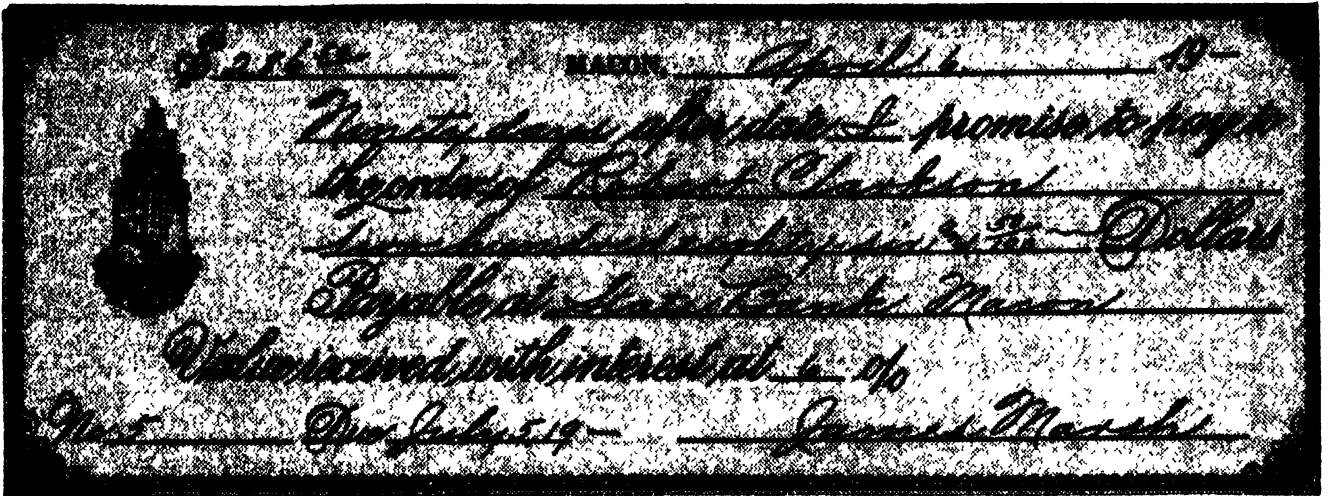 $ 286 50 MACON, April 6 19—
Ninety days after date I promise to pay to
the order of Robert Clarkson
Two hundred eighty six & 50/100 Dollars
Payable at State Bank Macon
Value received with interest at 6 %
No. 5 Due July 5 19— James Marsh